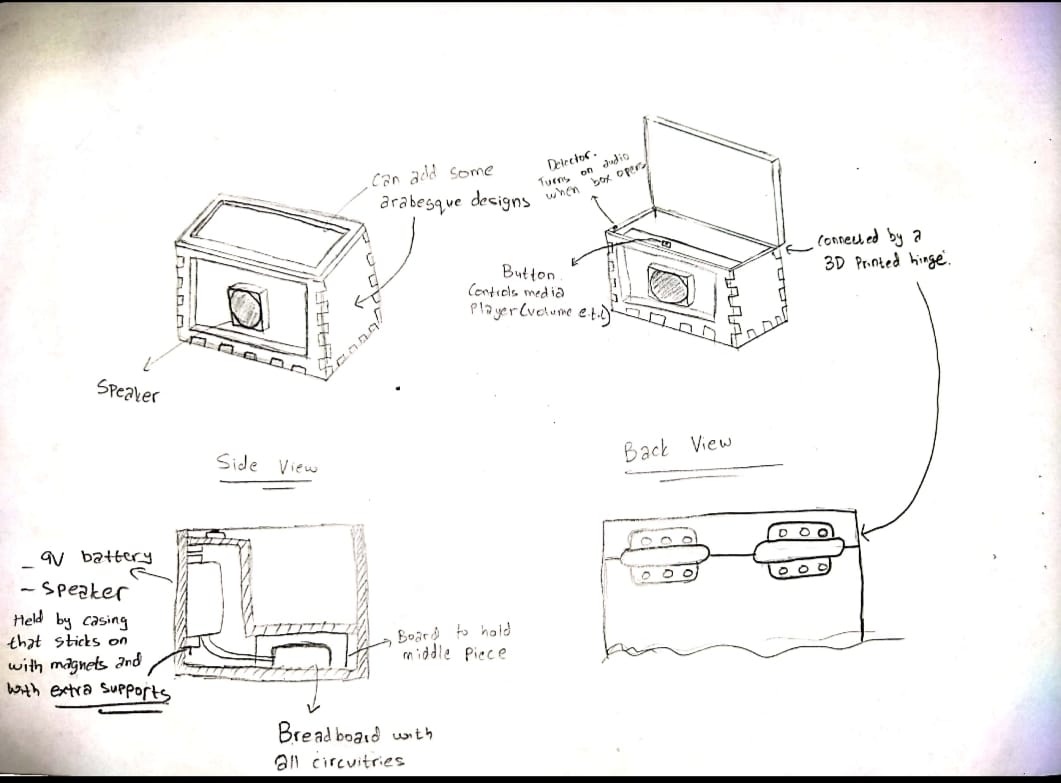 Can add some
arabesque designs
Speaker
Detector.
Turns on audio
when box opens
Button.
Controls media
Player (volume e.t.c)
Connected by a
3D Printed hinge.
Side View
- 9V battery
- Speaker
Held by casing
that sticks on
with magnets and
with extra supports
Board to hold
middle piece
Breadboard with
all circuitries
Back View